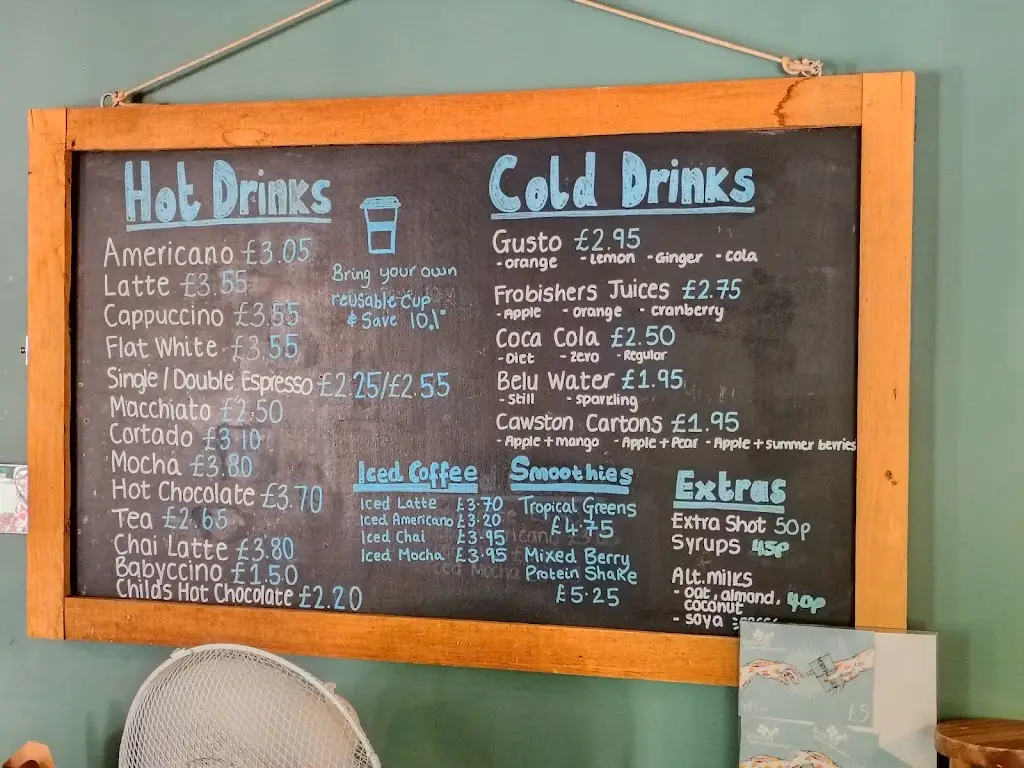 Hot Drinks
Americano £3.05
Latte £3.55
Cappuccino £3.55
Flat White £3.55
Single / Double Espresso £2.25/£2.55
Macchiato £2.50
Cortado £3.10
Mocha £3.80
Hot Chocolate £3.70
Tea £2.65
Chai Latte £3.80
Babyccino £1.50
Childs Hot Chocolate £2.20
Bring your own
reusable Cup
& Save 10%
Iced Coffee
Iced Latte £3.70
Iced Americano £3.20
Iced Chai £3.95
Iced Mocha £3.95
Cold Drinks
Gusto £2.95
- orange - Lemon - Ginger - cola
Frobishers Juices £2.75
- Apple - orange - cranberry
Coca Cola £2.50
- Diet - Zero - Regular
Belu Water £1.95
- Still - sparkling
Cawston Cartons £1.95
- Apple + mango - Apple + Pear - Apple + summer berries
Smoothies
Tropical Greens
£4.75
Mixed Berry
Protein Shake
£5.25
Extras
Extra Shot 50p
Syrups 45p
Alt. milks
- oat, almond, 40p
coconut
- soya
£5